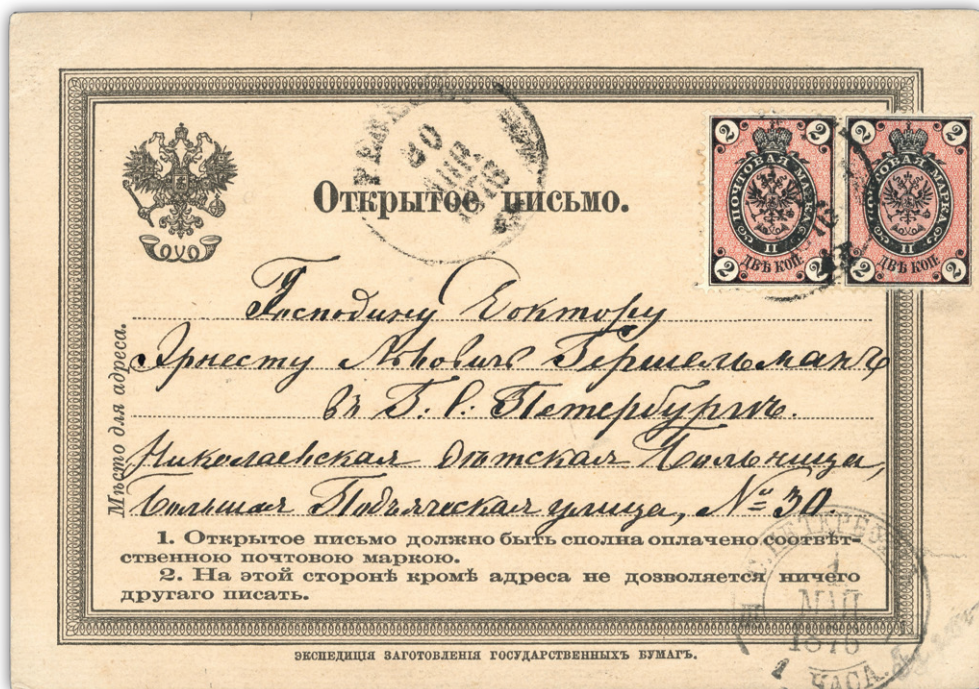 30
АПР.
Открытое письмо.
2 2 2 2
ПОЧТОВАЯ МАРКА
II
ДВѢ КОП.
2 2 2 2
ПОЧТОВАЯ МАРКА
II
ДВѢ КОП.
Мѣсто для адреса.
Господину Доктору
Эрнесту Львовичъ Гершельманъ
въ С. Петербургѣ.
Николаевская дѣтская больница,
Большая Подъяческая улица, № 30.
1. Открытое письмо должно быть сполна оплачено соотвѣт-
ственною почтовою маркою.
2. На этой сторонѣ кромѣ адреса не дозволяется ничего
другаго писать.
1
МАЯ
1876
1 ЧАСА.
ЭКСПЕДИЦІЯ ЗАГОТОВЛЕНІЯ ГОСУДАРСТВЕННЫХЪ БУМАГЪ.